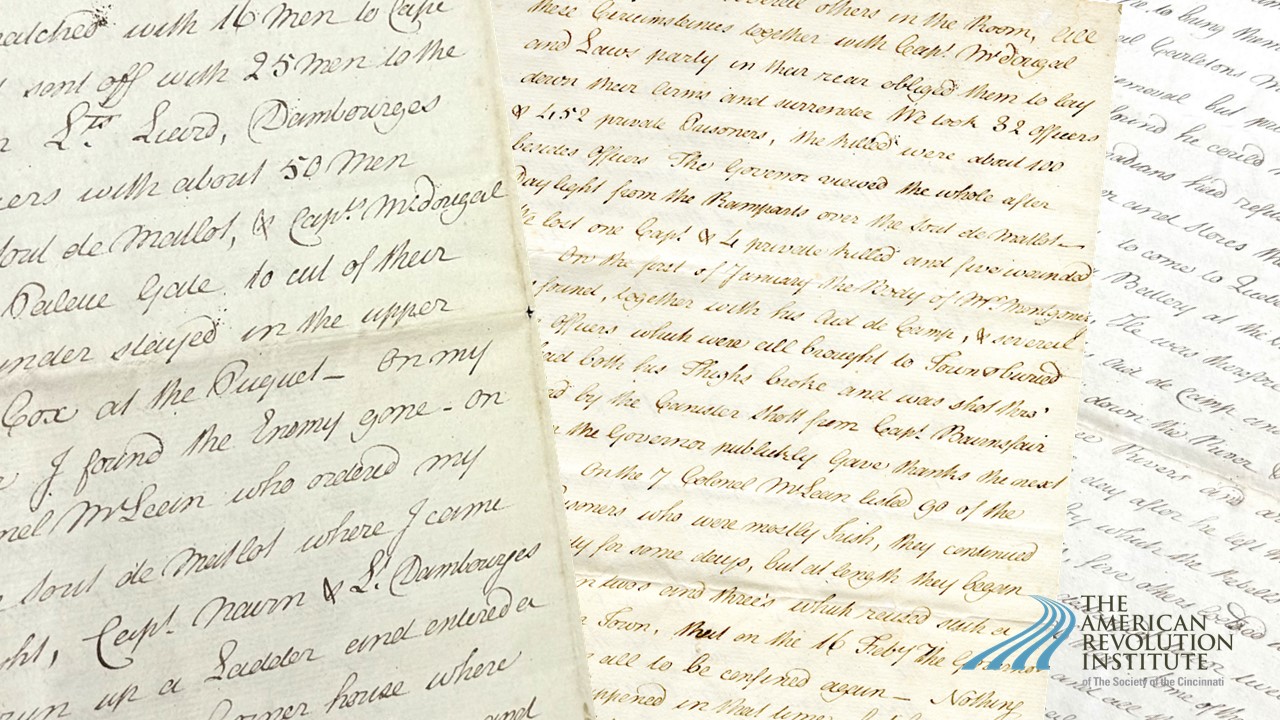 atched with 16 Men to Cape
sent off with 25 Men to the
Lts. Laird, Dambourges
cers with about 50 Men
Sout de Matlot, & Capt. McDougal
Palace Gate to cut of their
under stayed in the upper
Cox at the Puquet — On my
I found the Enemy gone - on
nel McLean who ordered my
Sout de Matlot where I came
ght, Capt. Nairn & Lt. Dambourges
up a Ladder and entered a
corner house where
and
others in the Room, all
these Circumstances together with Capt. McDougal
and Laws party in their rear obliged them to lay
down their Arms and surrender We took 32 Officers
& 452 private Prisoners, the killed were about 100
besides Officers The Governor viewed the whole after
Day light from the Ramparts over the Sout de Matlot—
We lost one Capt. & 4 private killed and five wounded
On the first of January the Body of Mr. Montgomery
found, together with his Aid de Camp, & several
Officers which were all brought to Town & buried
had both his Thighs broke and was shot thro'
by the Canister Shott from Capt. Barnsfair
the Governor publickly gave thanks the next
On the 7 Colonel McLean listed 90 of the
soners who were mostly Irish, they continued
for some days, but at length they began
twos and three's which raised such a
Town, that on the 16 Feby. the Governor
all to be confined again — Nothing
ppened in that time
to bring them
Carletons
but
found he could
adians had refu
and stores tha
to come to Queb
Battery at the
He was therefore
Aid de Camp an
down the River
Rivers and a
day after he left th
by which the Rebels
five others
THE
AMERICAN
REVOLUTION
INSTITUTE
of The Society of the Cincinnati